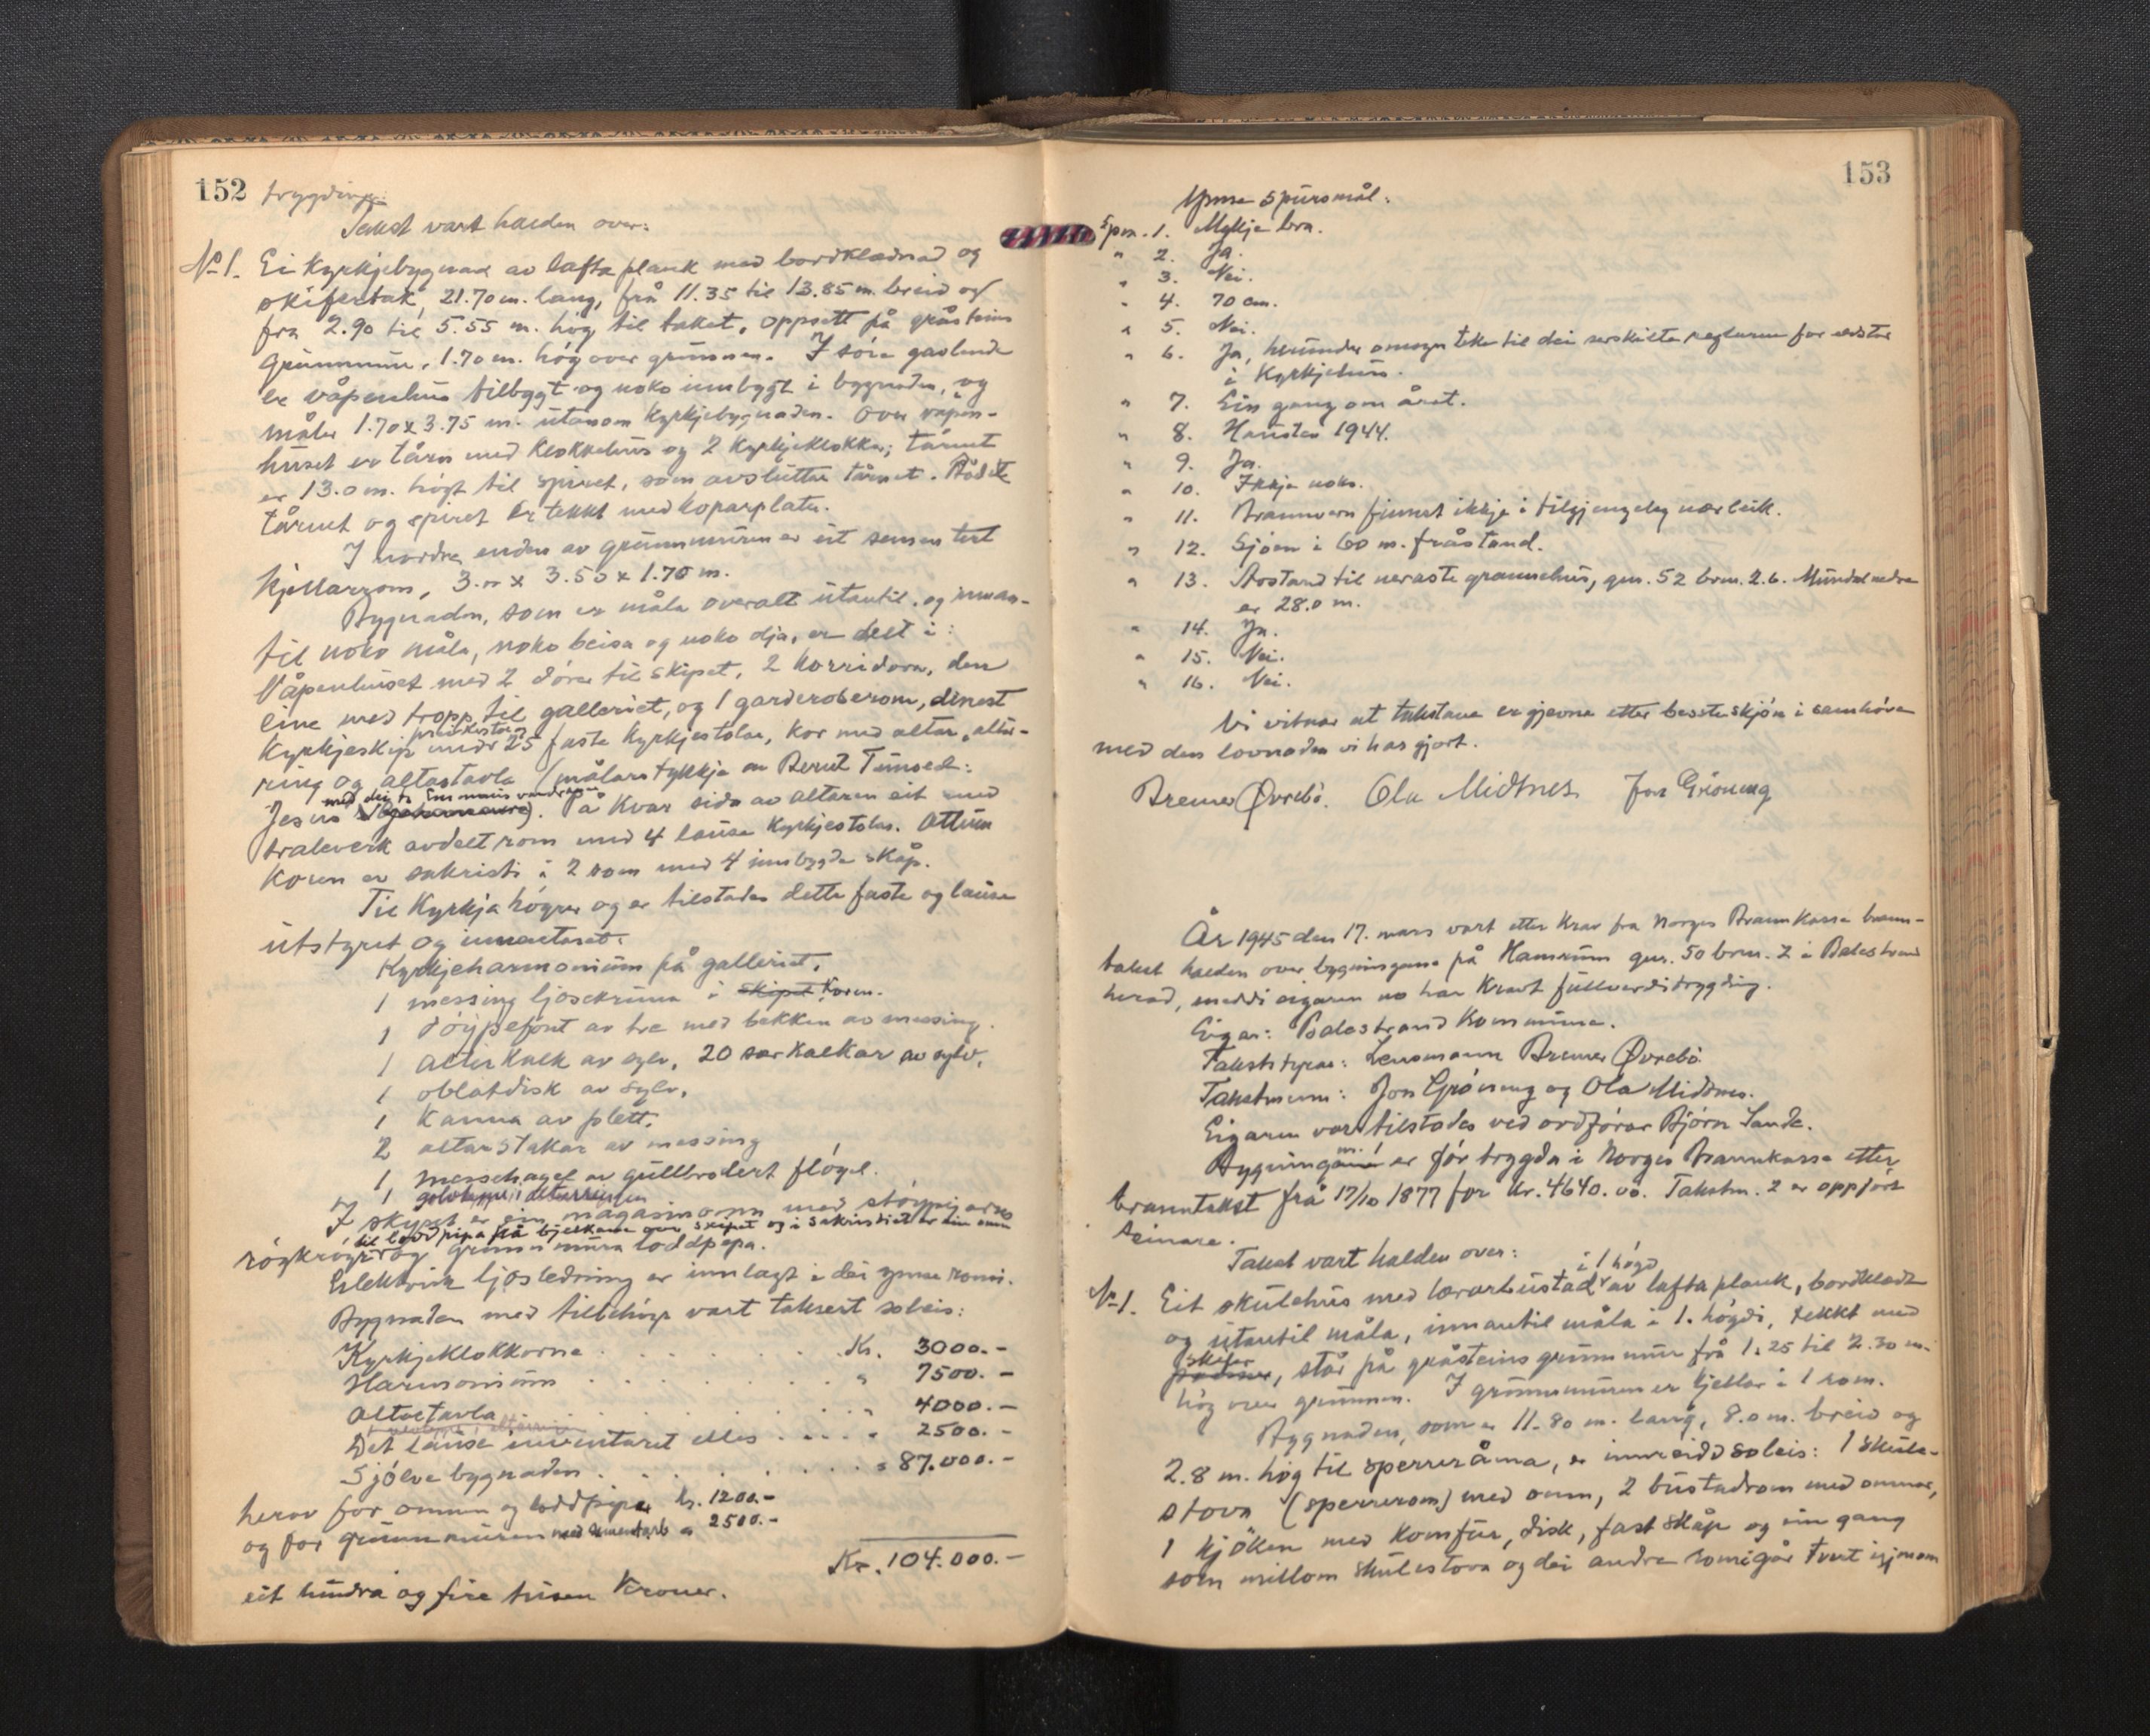 152 trygding.
Takst vart halden over:
No 1. Ei Kyrkjebygnad av lafta plank med bordklædnad og
skifertak, 21.70 m. lang, frå 11.35 til 13.85 m. breid og
fra 2.90 til 5.55 m. høg til taket, oppsett på gråsteins
grunnmur, 1.70 m. høg over grunnen. I søre gavlende
er våpenhus tilbygt og noko innbygt i bygnaden, og
måler 1.70 x 3.75 m. utanom Kyrkjebygnaden. Over våpen-
huset er tårn med klokkehus og 2 Kyrkjeklokker; tårnet
er 13.0 m. høgt til spiret, som avsluttar tårnet. Både
tårnet og spiret er tekkt med koparplater.
I nordre enden av grunnmuren er eit sementert
kjellarrom, 3.00 x 3.50 x 1.70 m.
Bygnaden, som er måla overalt utantil, og innan-
til noko måla, noko beisa og noko olja, er delt i:
Våpenhuset med 2 dører til skipet, 2 korridorar, den
eine med tropp til galleriet, og 1 garderoberom, dinest
preikestol
Kyrkjeskip med 25 faste Kyrkjestolar, kor med altar, altar-
ring og altartavla (målarstykkje av Bernt Tunold:
med dei to Emmaus vandrarane
Jesus). På kvar sida av altaren eit med
traleverk avdelt rom med 4 lause Kyrkjestolar. Attum
koren er sakristi i 2 rom med 4 innbygde skåp.
Til Kyrkja høyrer og er tilstades dette faste og lause
utstyret og inventaret:
Kyrkjeharmonium på galleriet,
1 messing ljosekruna i skipet Koren.
1 døypefont av tre med bekken av messing.
1 alterkalk av sylv, 20 særkalkar av sylv,
1 oblatdisk av sylv,
1 Kanna av plett,
2 altarstakar av messing
1 messehagel av gullbrodert fløyel.
1 golvteppe i altarringen
I skipet er ein magasinomn med støypejarns
til loddpipa på bjelkane over skipet og i sakristiet er ein omn
røykrøyr og grunnmura loddpipa.
Elektrisk ljosledning er innlagt i dei ymse romi.
Bygnaden med tilbehøyr vart taksert soleis:
Kyrkjeklokkorne . . . . . . . Kr. 3000.-
Harmonium . . . . . . . " 7500.-
Altartavla . . . . . . . " 4000.-
Det lause inventaret elles . . . . " 2500.-
Sjølve bygnaden . . . . . . . " 87.000.-
herav for omnen og loddpipa kr. 1200.-
og for grunnmuren med sementarb. " 2500.-
Kr. 104.000.-
eit hundra og fire tusen Kroner.
153
Ymse spursmål:
Spm. 1. Mykje bra.
" 2. Ja.
" 3. Nei.
" 4. 70 cm.
" 5. Nei.
" 6. Ja, herunder omsyn teke til dei serskilte reglarne for eldstar
i Kyrkjehus.
" 7. Ein gang om året.
" 8. Hausten 1944.
" 9. Ja.
" 10. Ikkje noko.
" 11. Brannvern finnst ikkje i tilgjengeleg nærleik.
" 12. Sjøen i 60 m. fråstand.
" 13. Avstand til næraste grannehus, gnr. 52 brnr. 2.6. Mundal nedre
er 28.0 m.
" 14. Ja.
" 15. Nei.
" 16. Nei.
Vi vitnar at takstane er gjevne etter beste skjøn i samhøve
med den lovnaden vi har gjort.
Bremer Øvrebø. Ola Midtnes Jon Grøneng
År 1945 den 17. mars vart etter krav fra Norges Brannkasse brann-
takst halden over bygningane på Hamrum gnr. 50 brnr. 2 i Balestrand
herad, med di eigaren no har kravt fullverditrygding.
Eigar: Balestrand Kommune.
Takststyrar: Lensmann Bremer Øvrebø.
Takstmenn: Jon Grøneng og Ola Midtnes.
Eigaren var tilstades ved ordførar Bjørn Sande.
Bygningane er før trygda i Norges Brannkasse etter
branntakst frå 17/10 1877 for kr. 4640.00. Takstnr. 2 er oppført
seinare.
Takst vart halden over:
i 1 høgd
No 1. Eit skulehus med lærarbustad av lafta plank, bordkledt
og utantil måla, innantil måla i 1. høgdi, tekkt med
skifer
, står på gråsteins grunnmur frå 1.25 til 2.30 m.
høg over grunnen. I grunnmuren er kjellar i 1 rom.
Bygnaden, som er 11.80 m. lang, 8.0 m. breid og
2.8 m. høg til sperreråma, er innreidd soleis: 1 skule-
stova (sperrerom) med omn, 2 bustadrom med omnar,
1 kjøken med komfur, disk, fast skåp og ein gang
som millom skulestova og dei andre romi går tvert igjenom